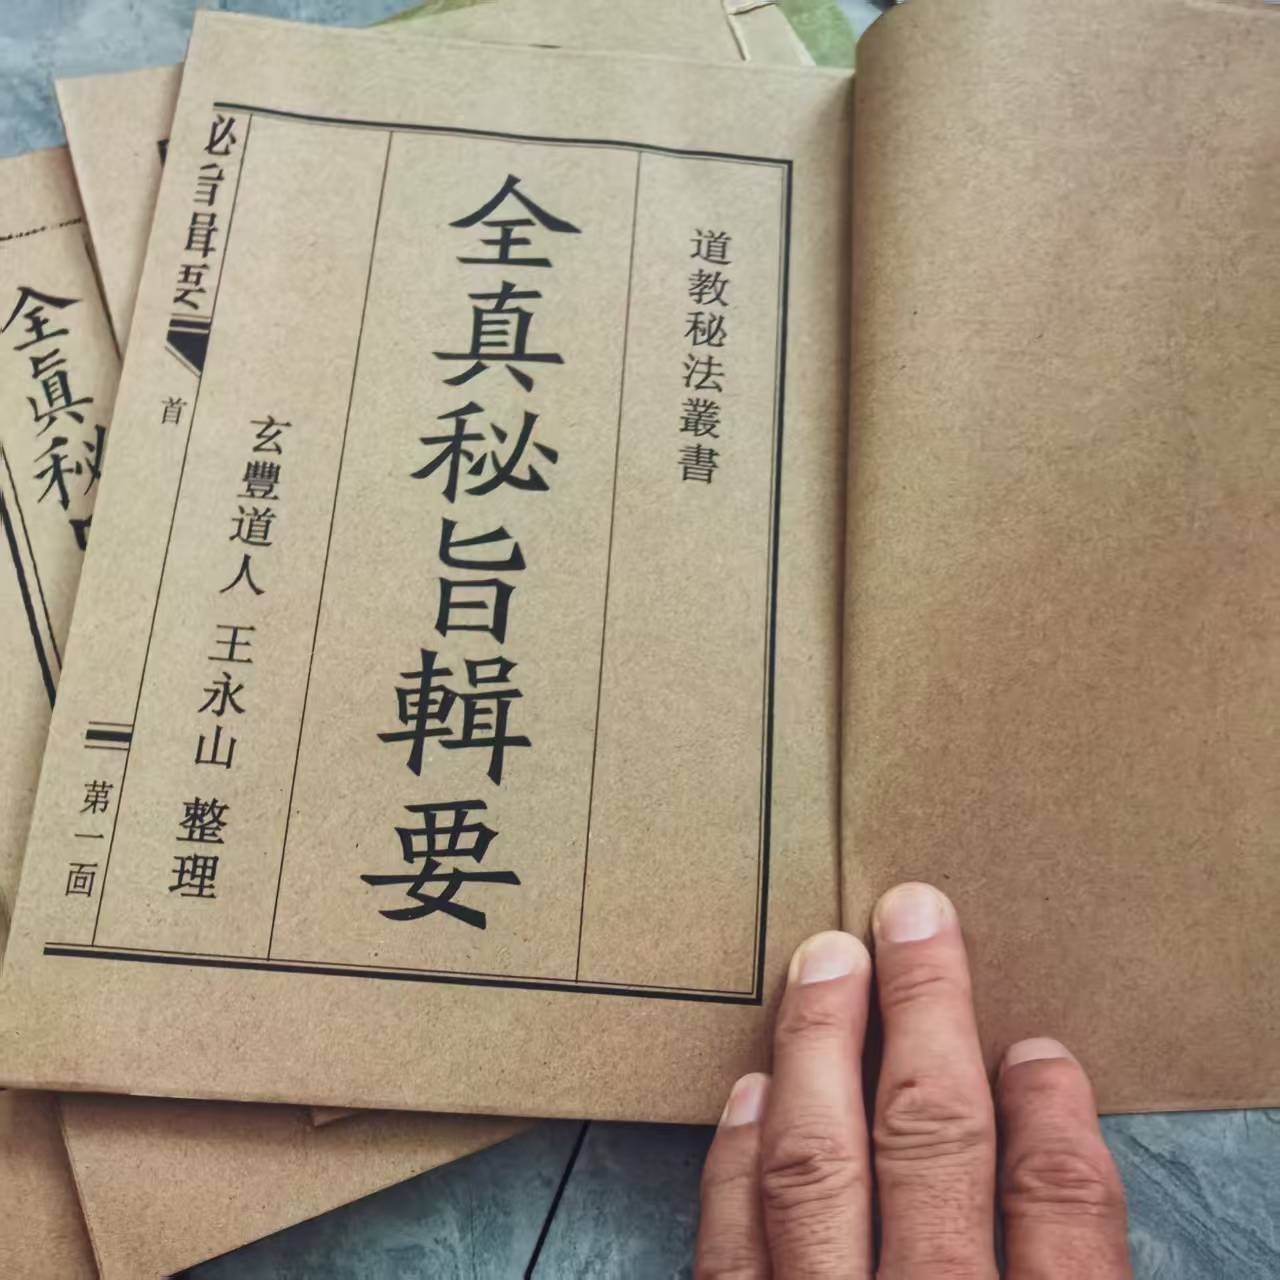 道教秘法叢書
全真秘旨輯要
玄豐道人 王永山 整理
必旨輯要
首
第一面
全眞秘